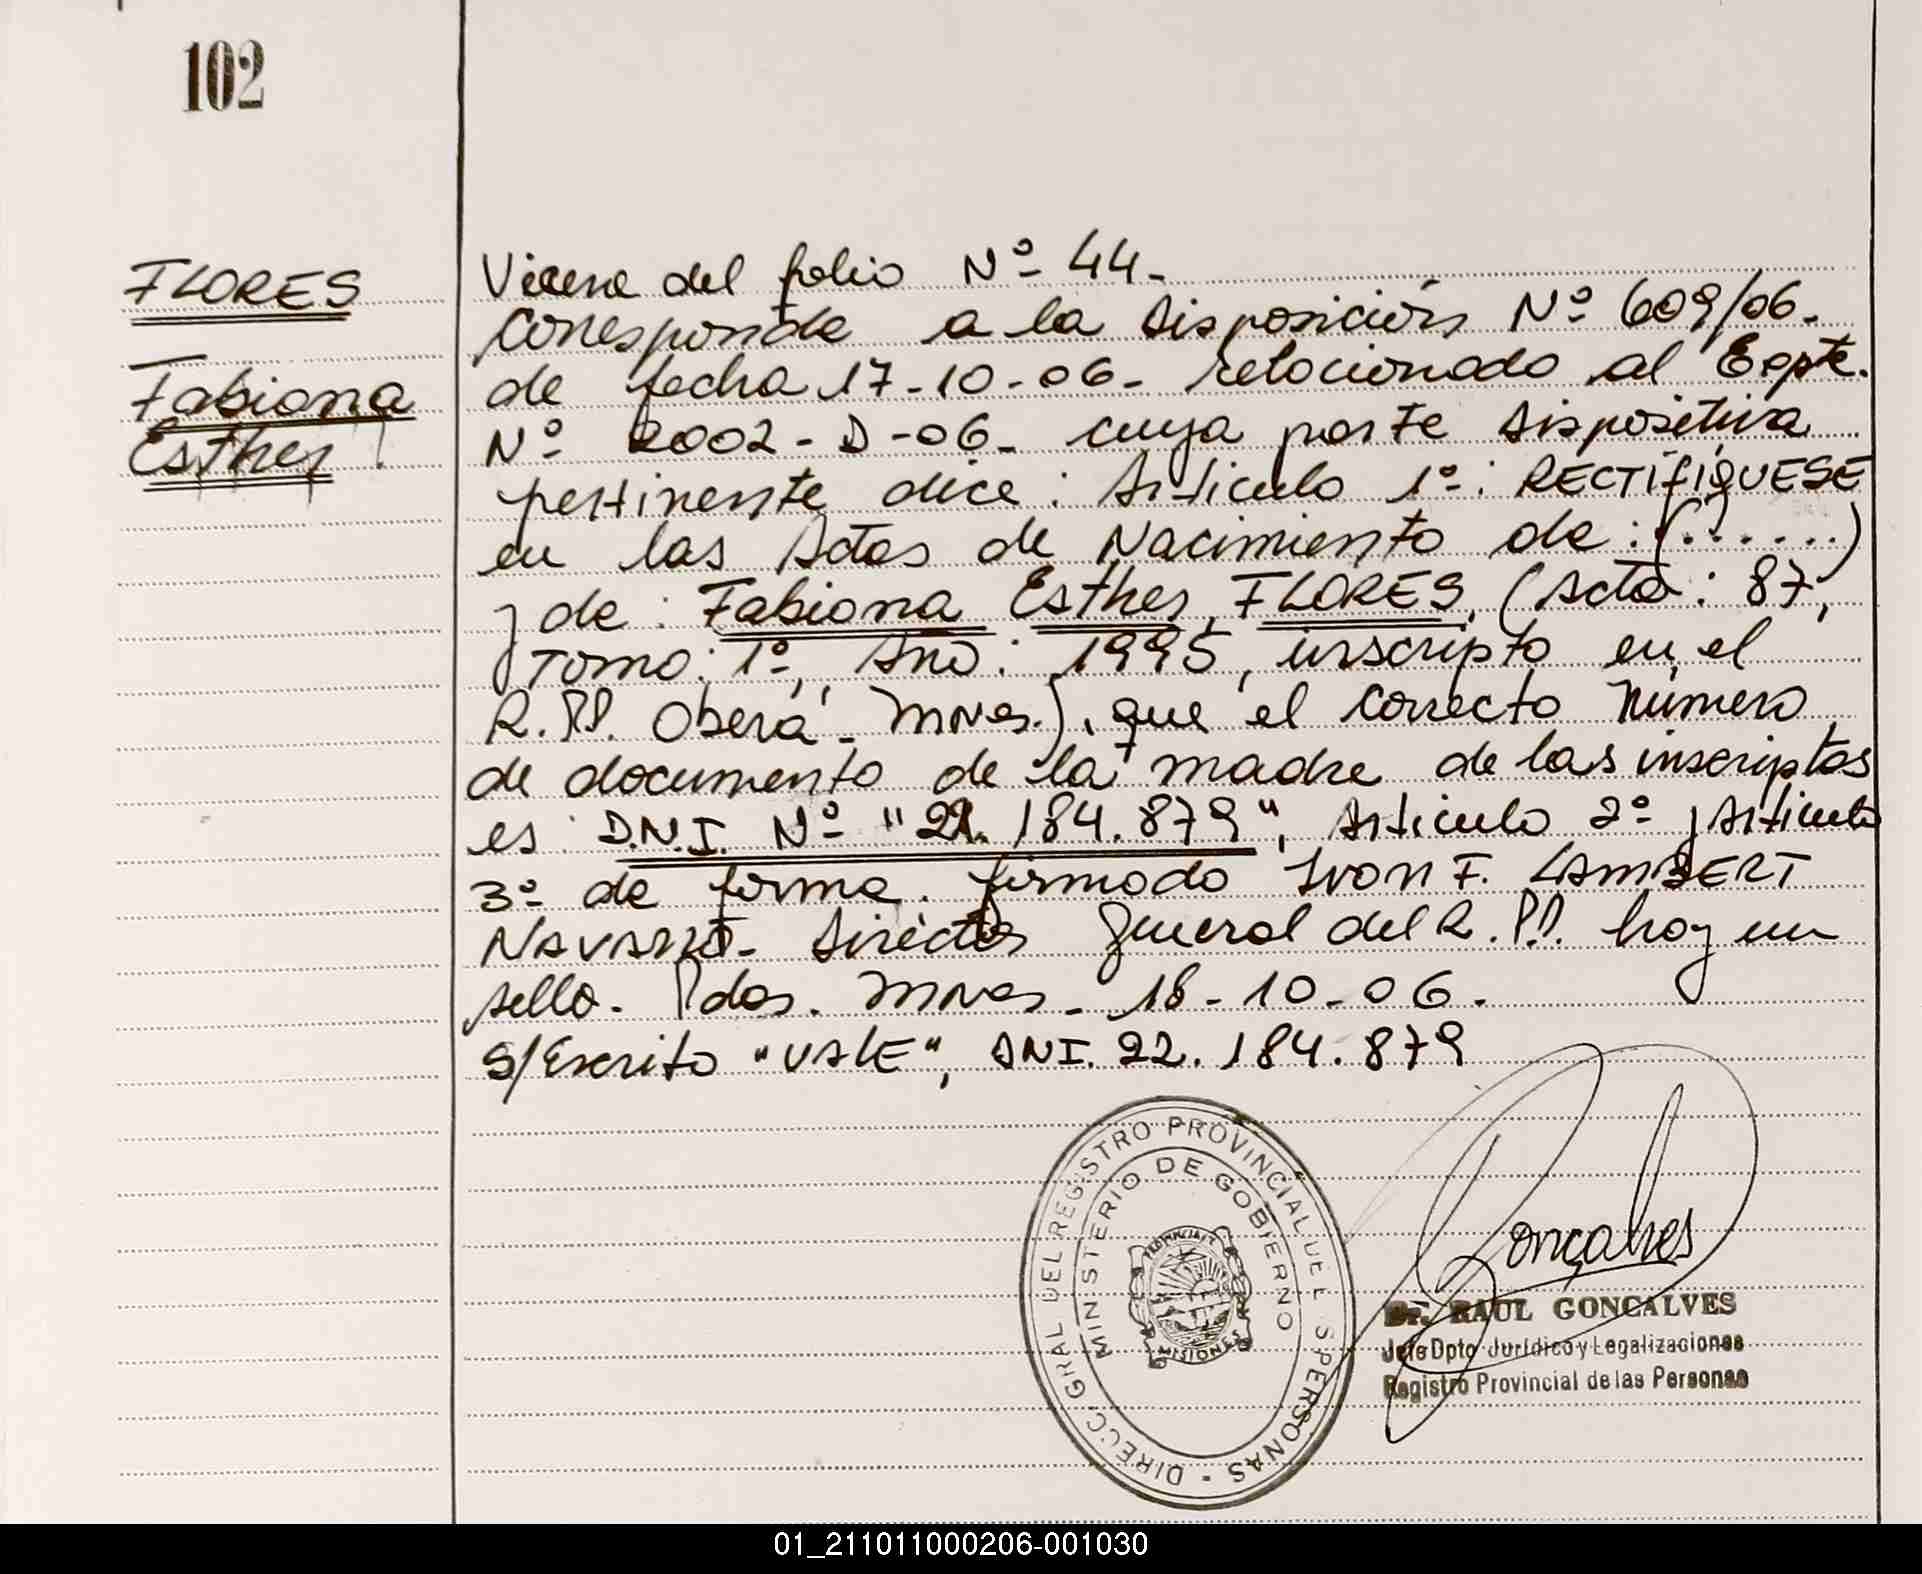 102
FLORES
Fabiana
Esther
Viene del folio Nº 44-
Corresponde a la Disposición Nº 609/06-
de fecha 17-10-06- relacionado al Expte.
Nº 2002-D-06- cuya parte dispositiva
pertinente dice: Articulo 1º: RECTIFIQUESE
en las Actas de Nacimiento de: (......)
y de: Fabiana Esther FLORES, (Acta: 87,
Tomo: 1º, Año: 1995, inscripto en el
R.PP. Oberá - Mnes.), que el correcto número
de documento de la madre de las inscriptas
es: D.N.I. Nº "22.184.879", Articulo 2º y Articulo
3º de forma. firmado Ivon F. LAMBERT
NAVARRO- Director General del R.PP. hay un
sello. Pdas. Mnes- 18-10-06.
S/Escrito "VALE", DNI. 22.184.879
DIRECC. GRAL DEL REGISTRO PROVINCIAL DE L S PERSONAS -
MINISTERIO DE GOBIERNO
PROVINCIA DE
MISIONES
Gonçalves
Dr. RAUL GONCALVES
Jefe Dpto Jurídico y Legalizaciones
Registro Provincial de las Personas
01_211011000206-001030